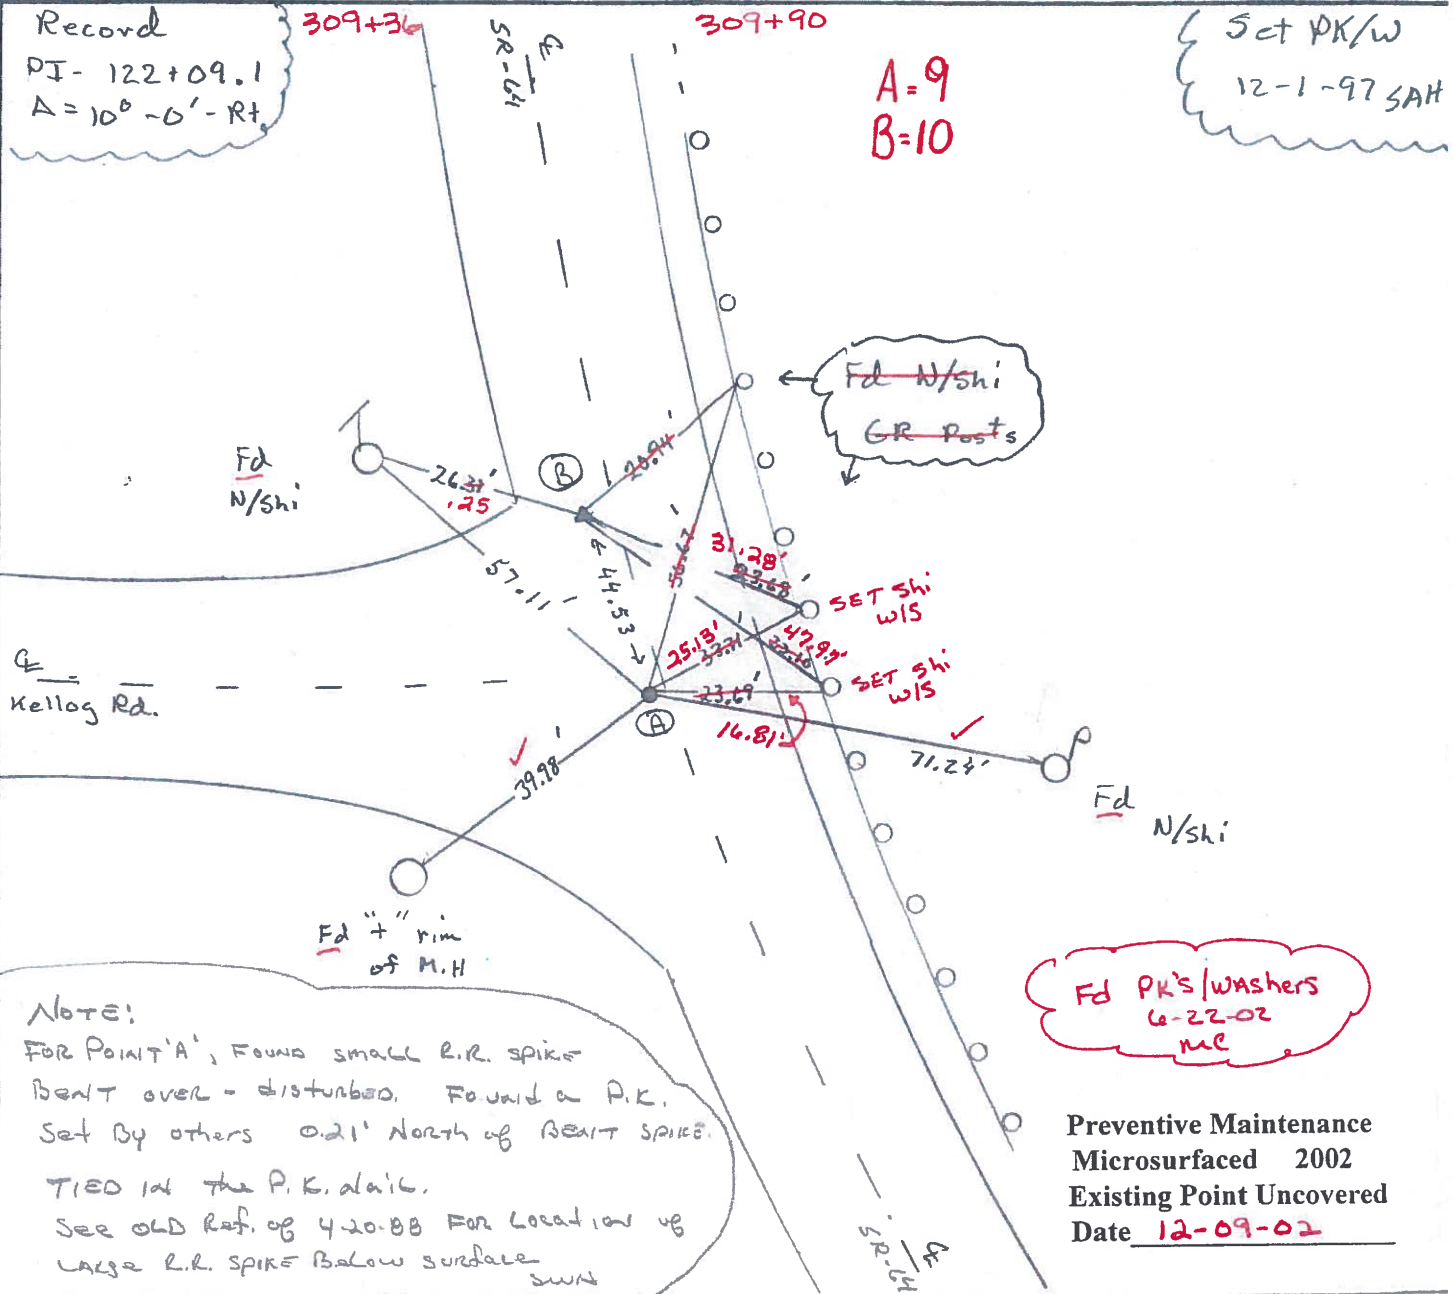 Record
PI- 122+09.1
Δ = 10° -0' - Rt.
309+36
℄
SR-64
309+90
A=9
B=10
Set PK/W
12-1-97 SAH
Fd N/Shi
GR Posts
Fd
N/Shi
26.31'
.25
B
20.94'
57.11'
44.53
56.67
31.28'
23.68'
SET Shi
W/S
25.13'
33.71
47.95'
SET Shi
W/S
23.69'
16.81'
A
℄
Kellog Rd.
39.98'
71.24'
Fd
N/Shi
Fd "+" rim
of M.H
Fd PK's/WAshers
6-22-02
MC
NOTE:
FOR POINT 'A', FOUND small R.R. SPIKE
BENT OVER - disturbed. Found a P.K.
Set By others 0.21' North of BENT SPIKE.
TIED IN the P.K. Nail.
See OLD Ref. of 4-20-88 FOR Location of
LARGE R.R. SPIKE Below surface
SWN
℄
SR-64
Preventive Maintenance
Microsurfaced 2002
Existing Point Uncovered
Date 12-09-02